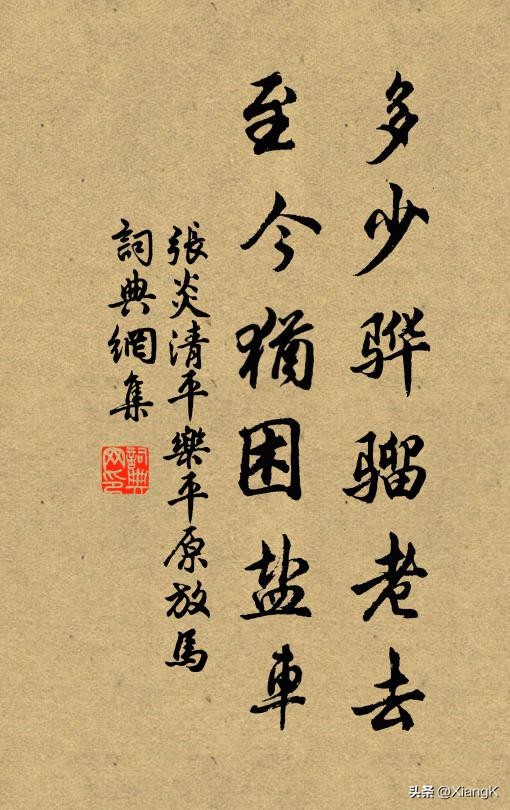 多少骅骝老去
至今猶困盐車
張炎清平樂平原放馬
詞典網集
詞典网印
头条 @XiangK